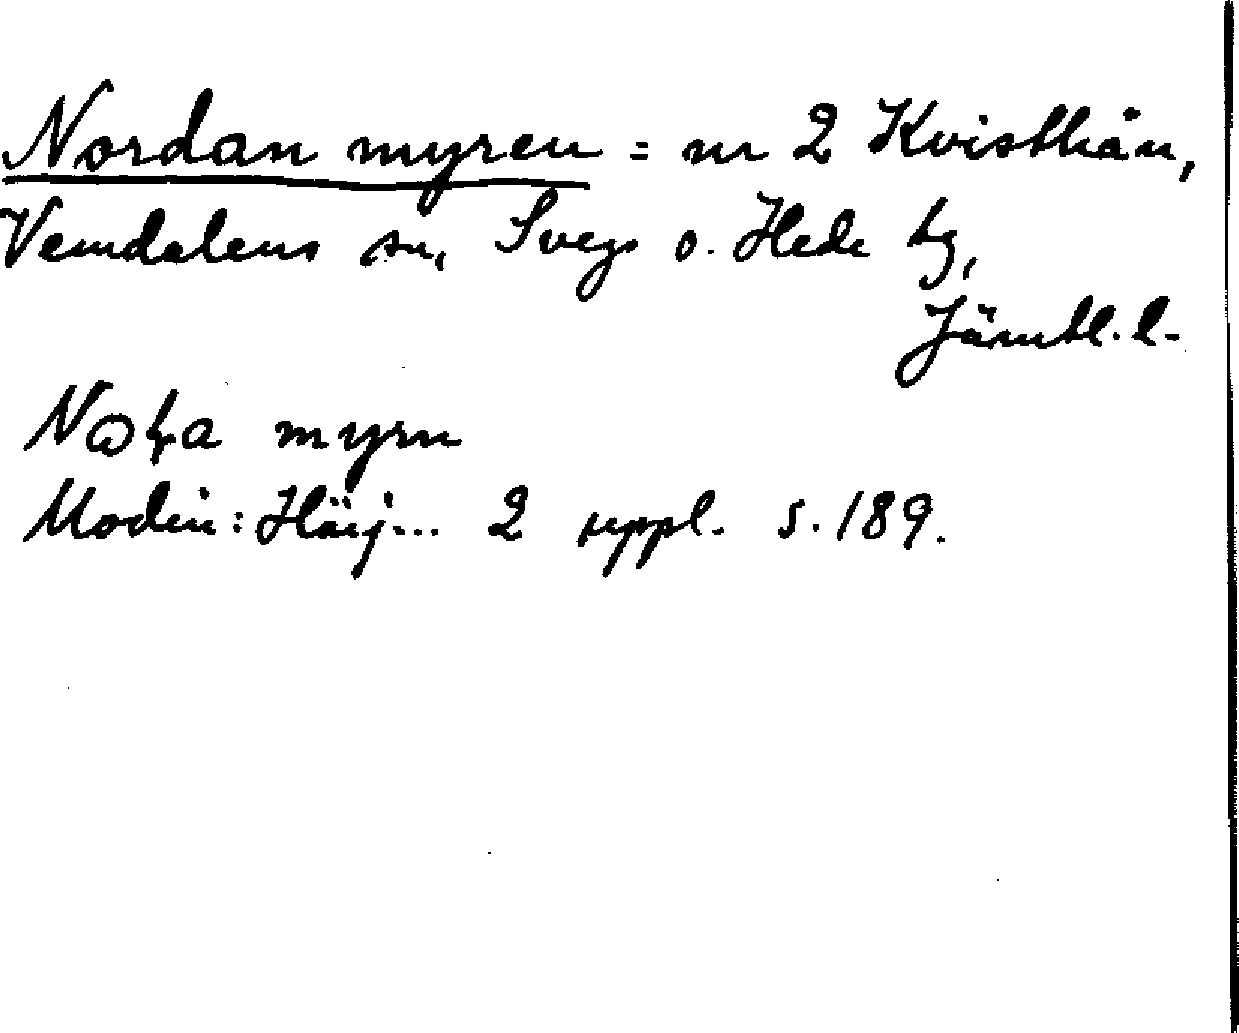 Nordan myren = nr 2 Kvisthån,
Vemdalens sn, Svegs o. Hede tg,
Jämtl. l.
myrn
Modin: Härj... 2 uppl. s. 189.